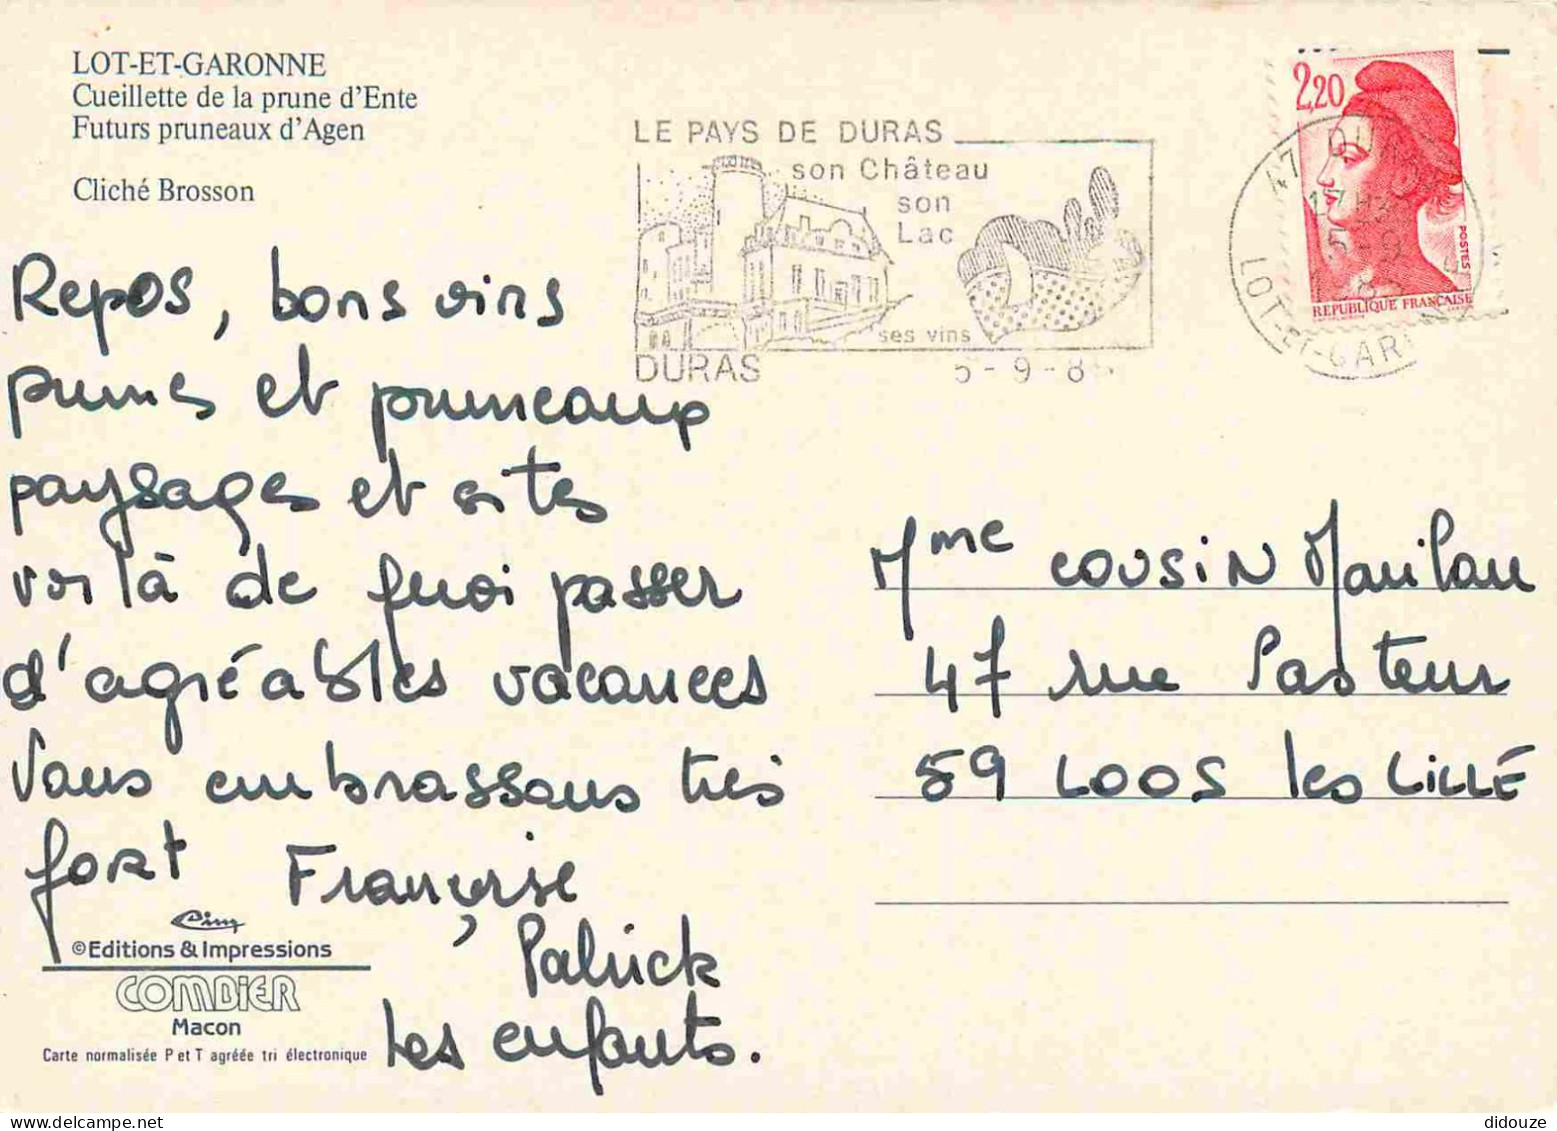 LOT-ET-GARONNE
Cueillette de la prune d'Ente
Futurs pruneaux d'Agen
Cliché Brosson
LE PAYS DE DURAS
son Château
son
Lac
ses vins
DURAS
5-9-8
2,20
POSTES
REPUBLIQUE FRANÇAISE
47
LOT-ET-GAR
Repos, bons vins
prunes et pruneaux
paysages et sites
voilà de quoi passer
d'agréables vacances
Vous embrassons très
fort Françoise
Patrick
Les enfants.
Mme COUSIN
47 rue Pasteur
59 LOOS les LILLE
Cim
©Editions & Impressions
COMBIER
Macon
Carte normalisée P et T agréée tri électronique
didouze